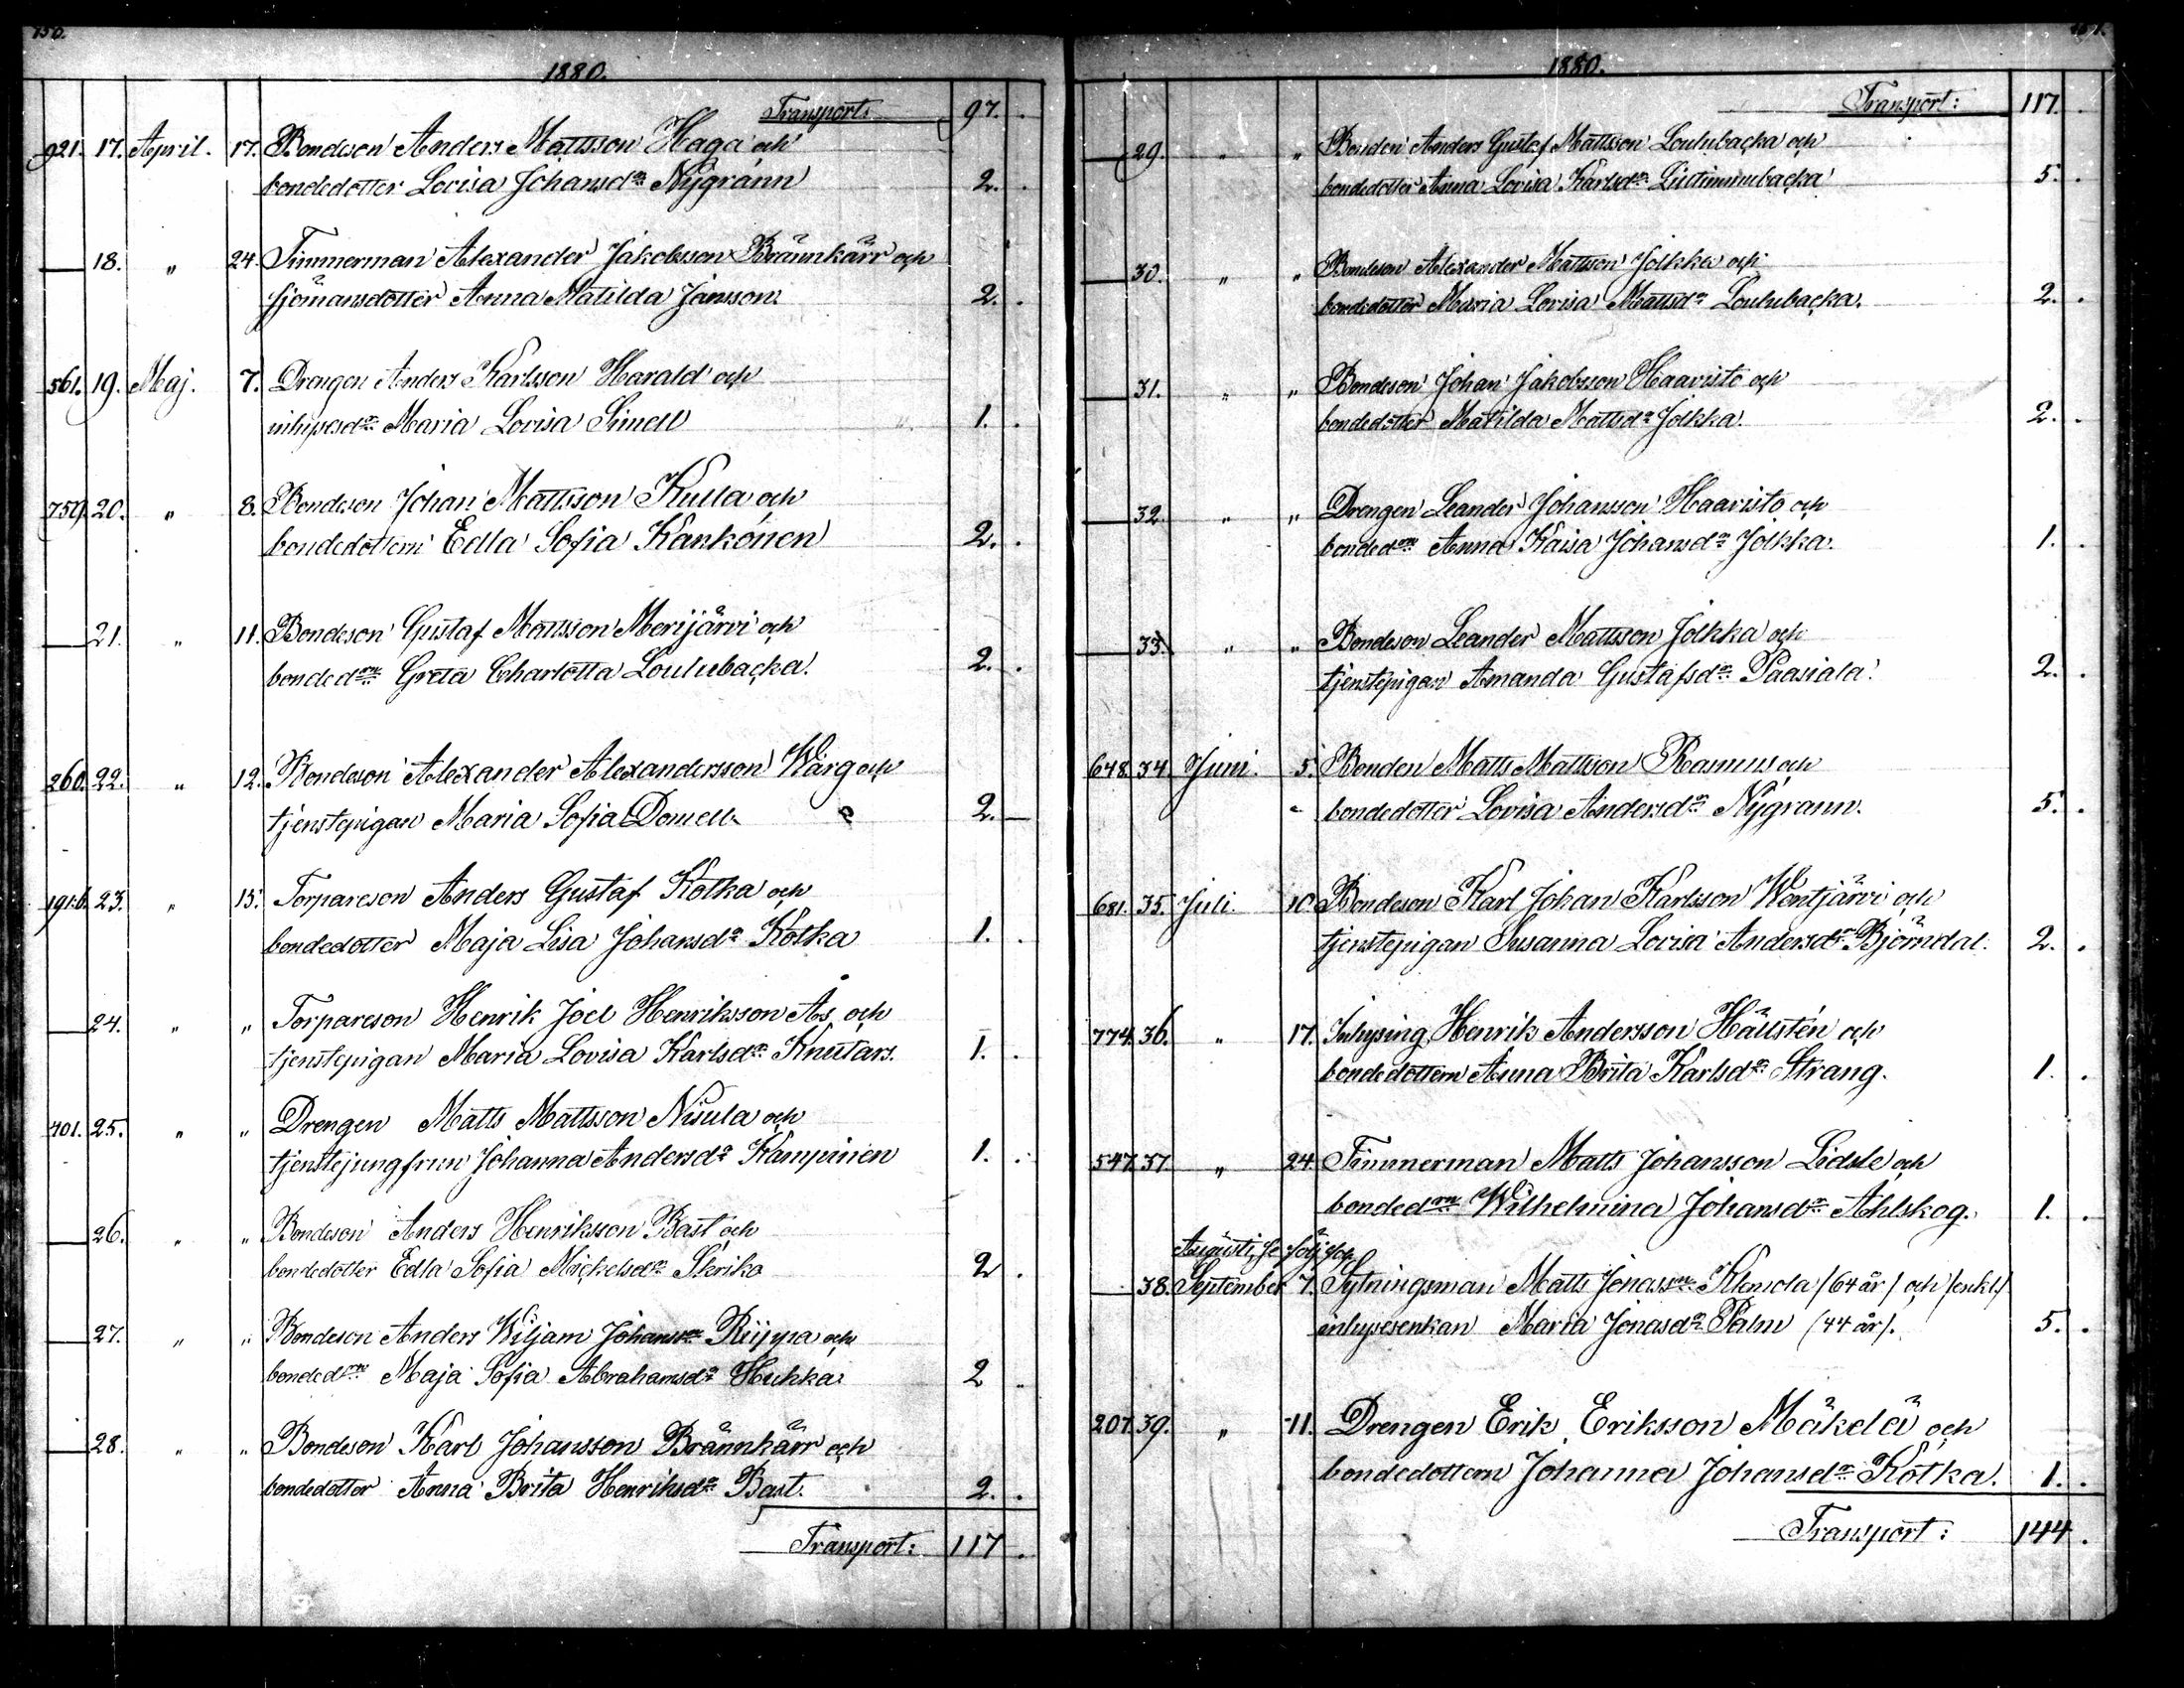 156.
1880.
Transport: 97.
921. 17. April. 17. Bondeson Anders Mattsson Haga och
bondedotter Lovisa Johansdr Nygrann 2.
18. " 24. Timmerman Alexander Jakobsson Brännkärr och
sjömansdotter Anna Matilda Jansson. 2.
561. 19. Maj. 7. Drengen Anders Karlsson Harald och
inhysesdr Maria Lovisa Simell 1.
759. 20. " 8. Bondeson Johan Mattsson Kulla och
bondedottern Edla Sofia Kankonen 2.
21. " 11. Bondeson Gustaf Mattsson Merijärvi och
bondedrn Greta Charlotta Loulubacka. 2.
260. 22. " 12. Bondeson Alexander Alexandersson Wärg och
tjenstepigan Maria Sofia Domell. 2. —
191.b. 23. " 15. Torpareson Anders Gustaf Kotka och
bondedotter Maja Lisa Johansdr Kotka 1.
24. " " Torpareson Henrik Joel Henriksson Ås och
tjenstepigan Maria Lovisa Karlsdr Knutars. 1.
401. 25. " " Drengen Matts Mattsson Nisula och
tjenstejungfrun Johanna Andersdr Kampinen 1.
26. " " Bondeson Anders Henriksson Bast och
bondedotter Edla Sofia Mickelsdr Skriko 2.
27. " " Bondeson Anders Wiljam Johansson Riippa och
bondedrn Maja Sofia Abrahamsdr Huhka. 2
28. " " Bondeson Karl Johansson Brännkärr och
bondedotter Anna Brita Henriksdr Bast. 2.
Transport: 117.
157.
1880.
Transport: 117.
29. " " Bonden Anders Gustaf Mattsson Loulubacka och
bondedotter Anna Lovisa Karlsdr 5.
30. " " Bondeson Alexander Mattsson Jolkka och
bondedotter Maria Lovisa Mattsdr Loulubacka. 2.
31. " " Bondeson Johan Jakobsson Haavisto och
bondedotter Matilda Mattsdr Jolkka. 2.
32. " " Drengen Leander Johansson Haavisto och
bondedrn Anna Kaisa Johansdr Jolkka. 1.
33. " " Bondeson Leander Mattsson Jolkka och
tjenstepigan Amanda Gustafsdr Paasiala. 2.
648. 34. Juni. 5. Bonden Matts Mattsson Rasmus och
bondedotter Lovisa Andersdr Nygrann. 5.
681. 35. Juli. 10. Bondeson Karl Johan Karlsson Wentjärvi och
tjenstepigan Susanna Lovisa Andersdr Björndal. 2.
774. 36. " 17. Inhysing Henrik Andersson Hällstén och
bondedottern Anna Brita Karlsdr Strang. 1.
547. 37. " 24. Timmerman Matts Johansson Lidsle och
bondedrn Wilhelmina Johansdr Åhlskog. 1.
Augusti, se följ.
38. September 7. Sytningsman Matts Jonasson Klemola (64 år) och (enkl.)
inhysesenkan Maria Jonasdr Palm (44 år). 5.
207. 39. " 11. Drengen Erik Eriksson Mäkelä och
bondedottern Johanna Johansdr Kotka. 1.
Transport: 144.